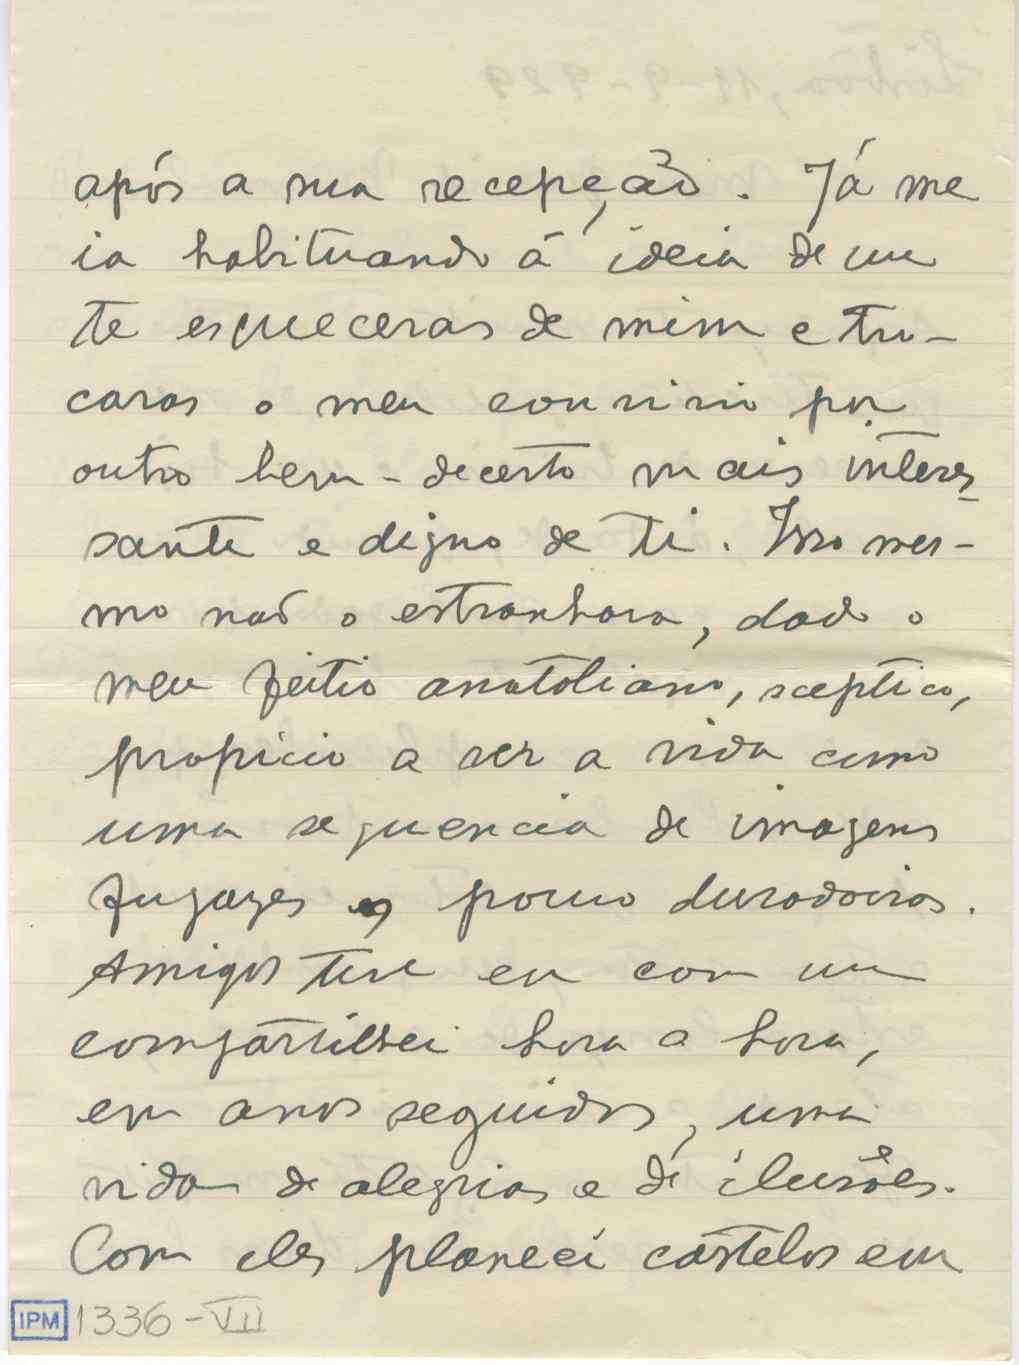 após a sua recepção. Já me
ia habituando á ideia de que
te esqueceras de mim e tro-
caras o meu convivio por
outro bem-decerto mais interes-
sante e digno de ti. Isso mes-
mo não o estranhara, dado o
meu feitio anatoliano, sceptico,
propicio a ver a vida como
uma sequencia de imagens
fugazes e pouco duradoiras.
Amigos tive eu com quem
compartilhei hora a hora,
em anos seguidos, uma
vida de alegrias e de ilusões.
Com eles planeei castelos em
IPM 1336-VII